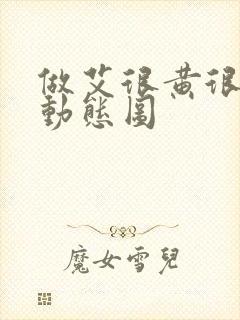 做艾很黄很
動態圖
魔女雪兒